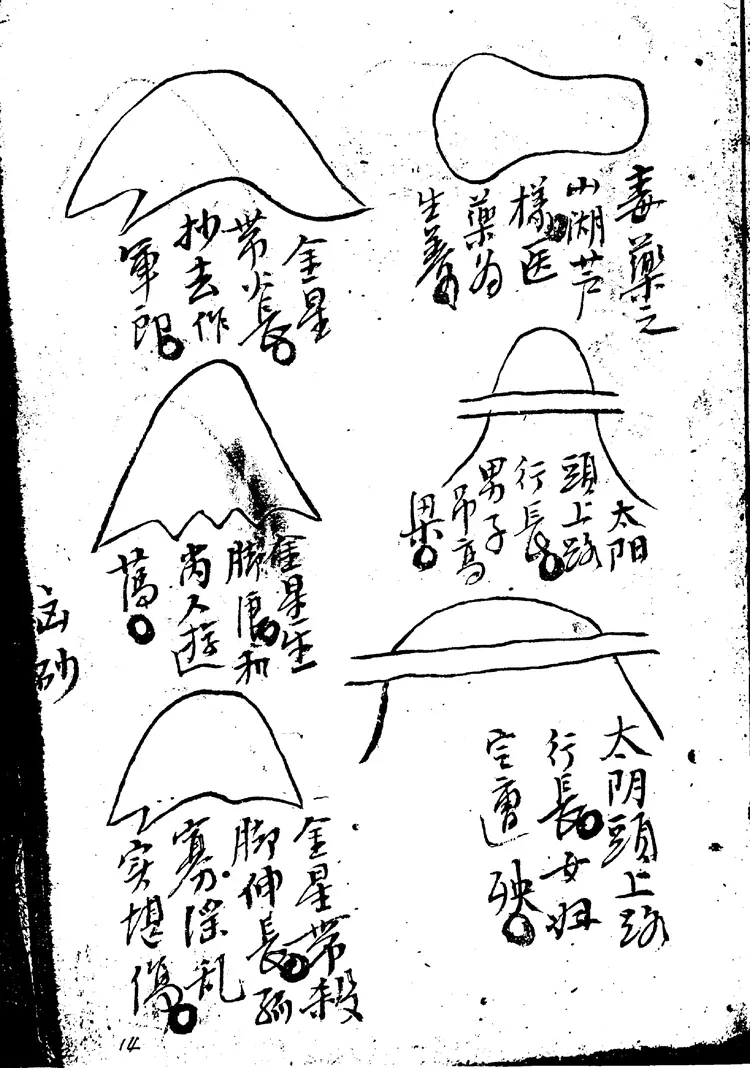 毒藥之
山湖芦
樣医
藥为
生養
金星
带長
抄去作
軍郎
太阳
頭上路
行長
男子
吊高
梁
金星生
脚和
尚人遊
蕩
太阴頭上路
行長女妇
定遭
殃
金星带殺
脚伸長孤
寡淫乱
实堪傷
凶砂
14